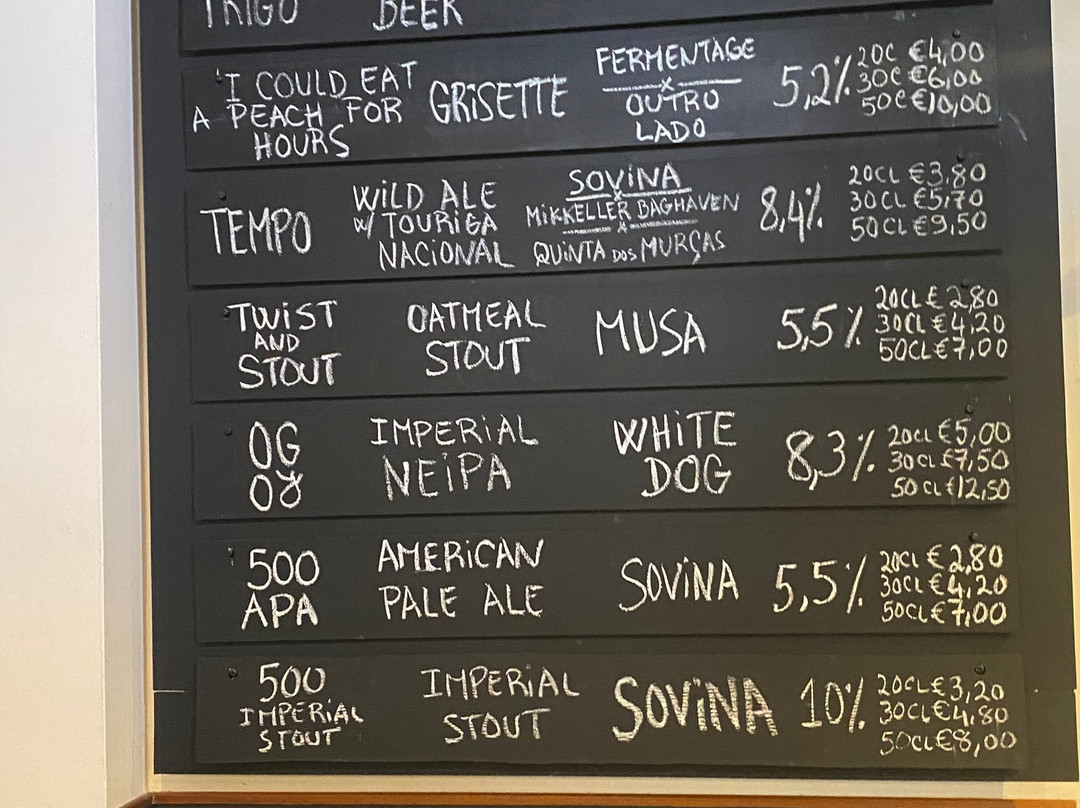 TRIGO BEER
'I COULD EAT
A PEACH FOR
HOURS
GRISETTE
FERMENTAGE
x
OUTRO
LADO
5,2%
20C €4,00
30C €6,00
50C €10,00
TEMPO
WiLD ALE
W/ TOURiGA
NACiONAL
SOViNA
x
MiKKELLER BAGHAVEN
x
QUiNTA DOS MURÇAS
8,4%
20CL €3,80
30CL €5,70
50CL €9,50
TWiST
AND
STOUT
OATMEAL
STOUT
MUSA
5,5%
20CL € 2,80
30CL €4,20
50CL €7,00
OG
OG
IMPERiAL
NEiPA
WHiTE
DOG
8,3%
20CL €5,00
30CL €7,50
50CL €12,50
500
APA
AMERiCAN
PALE ALE
SOViNA
5,5%
20CL € 2,80
30CL € 4,20
50CL €7,00
500
IMPERiAL
STOUT
IMPERiAL
STOUT
SOViNA
10%
20CL €3,20
30CL €4,80
50CL €8,00